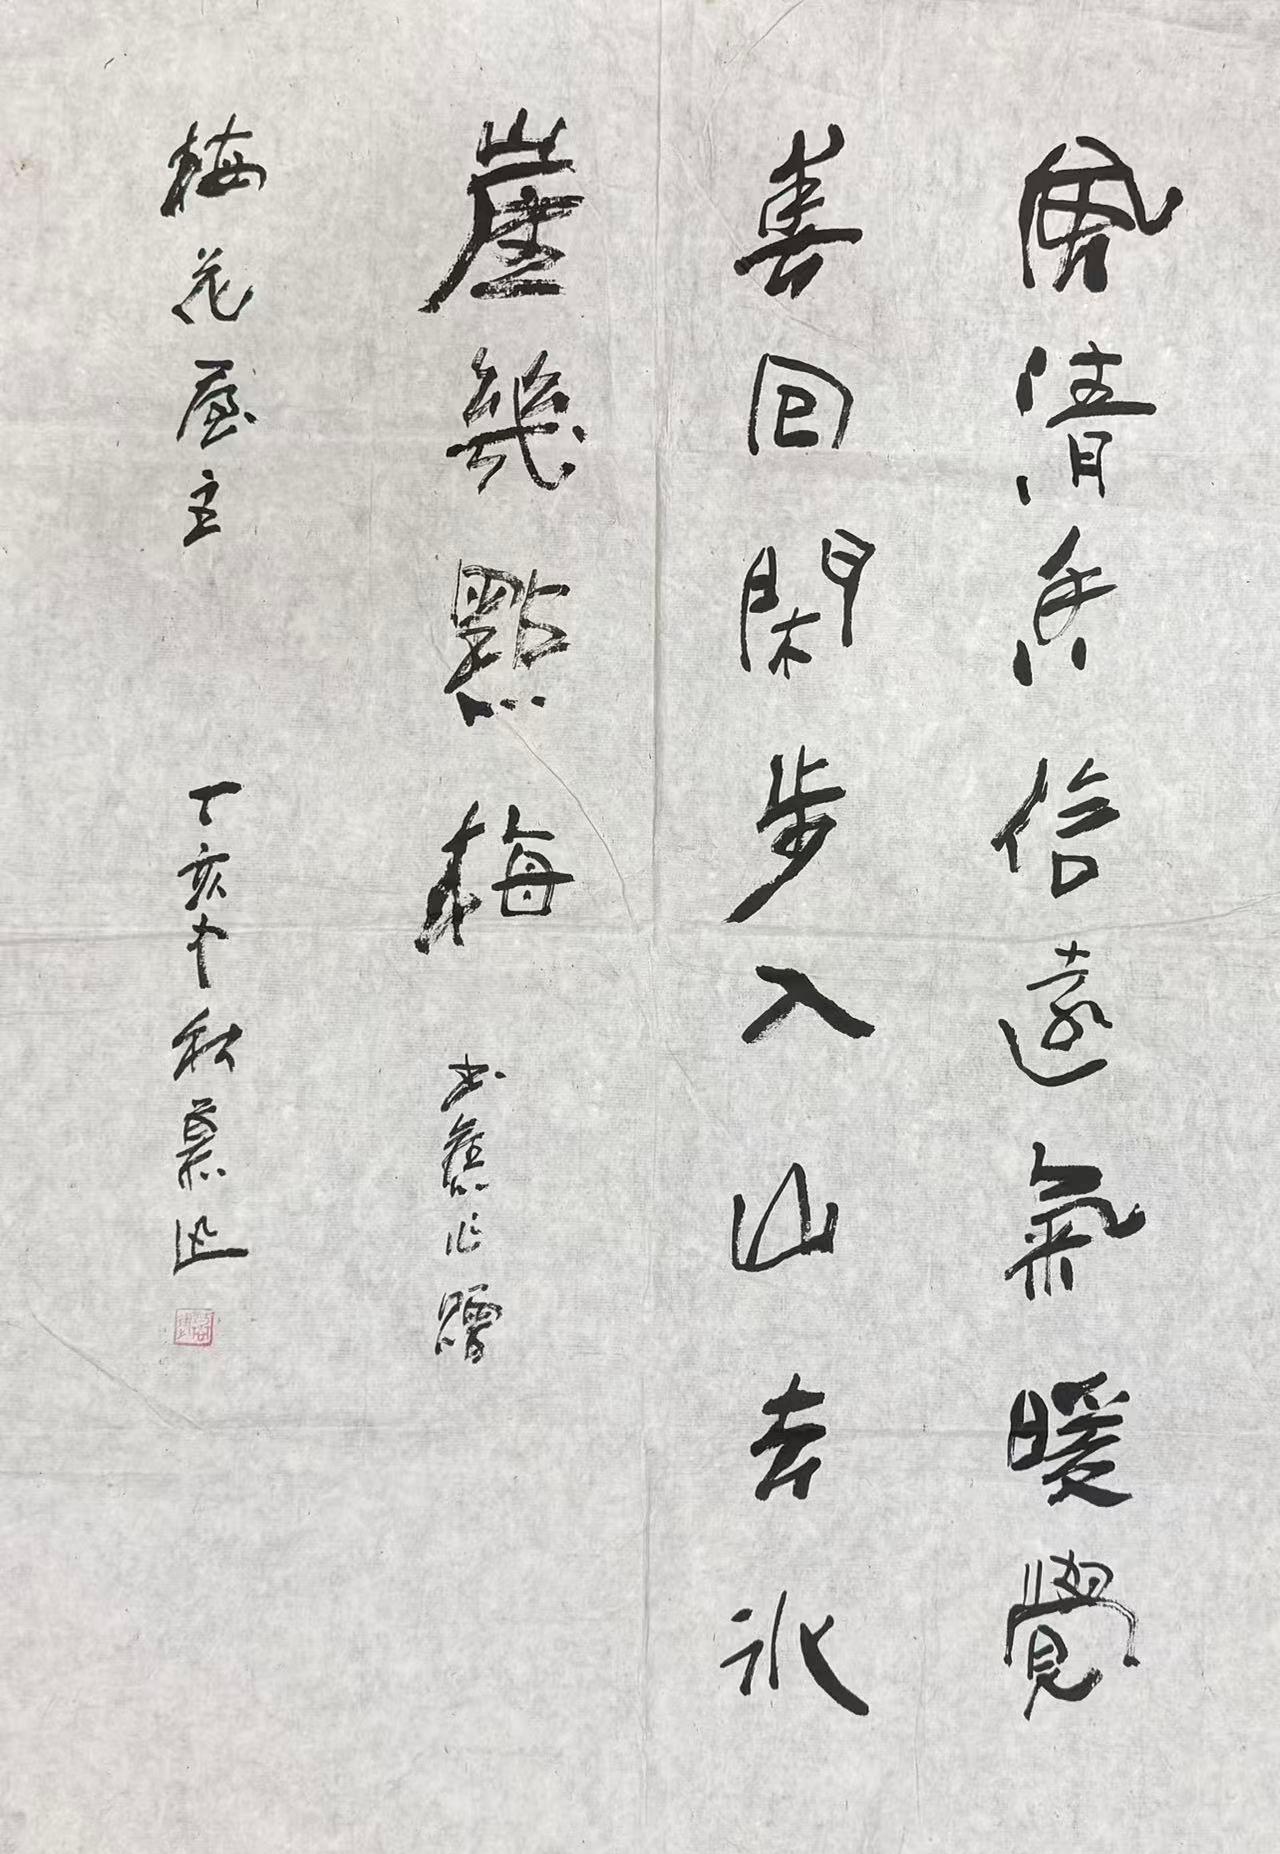 風清香信遠氣暖覺
春回閑步入山去冰
崖幾點梅 書舊作贈
梅花屋主 丁亥中秋慕迅